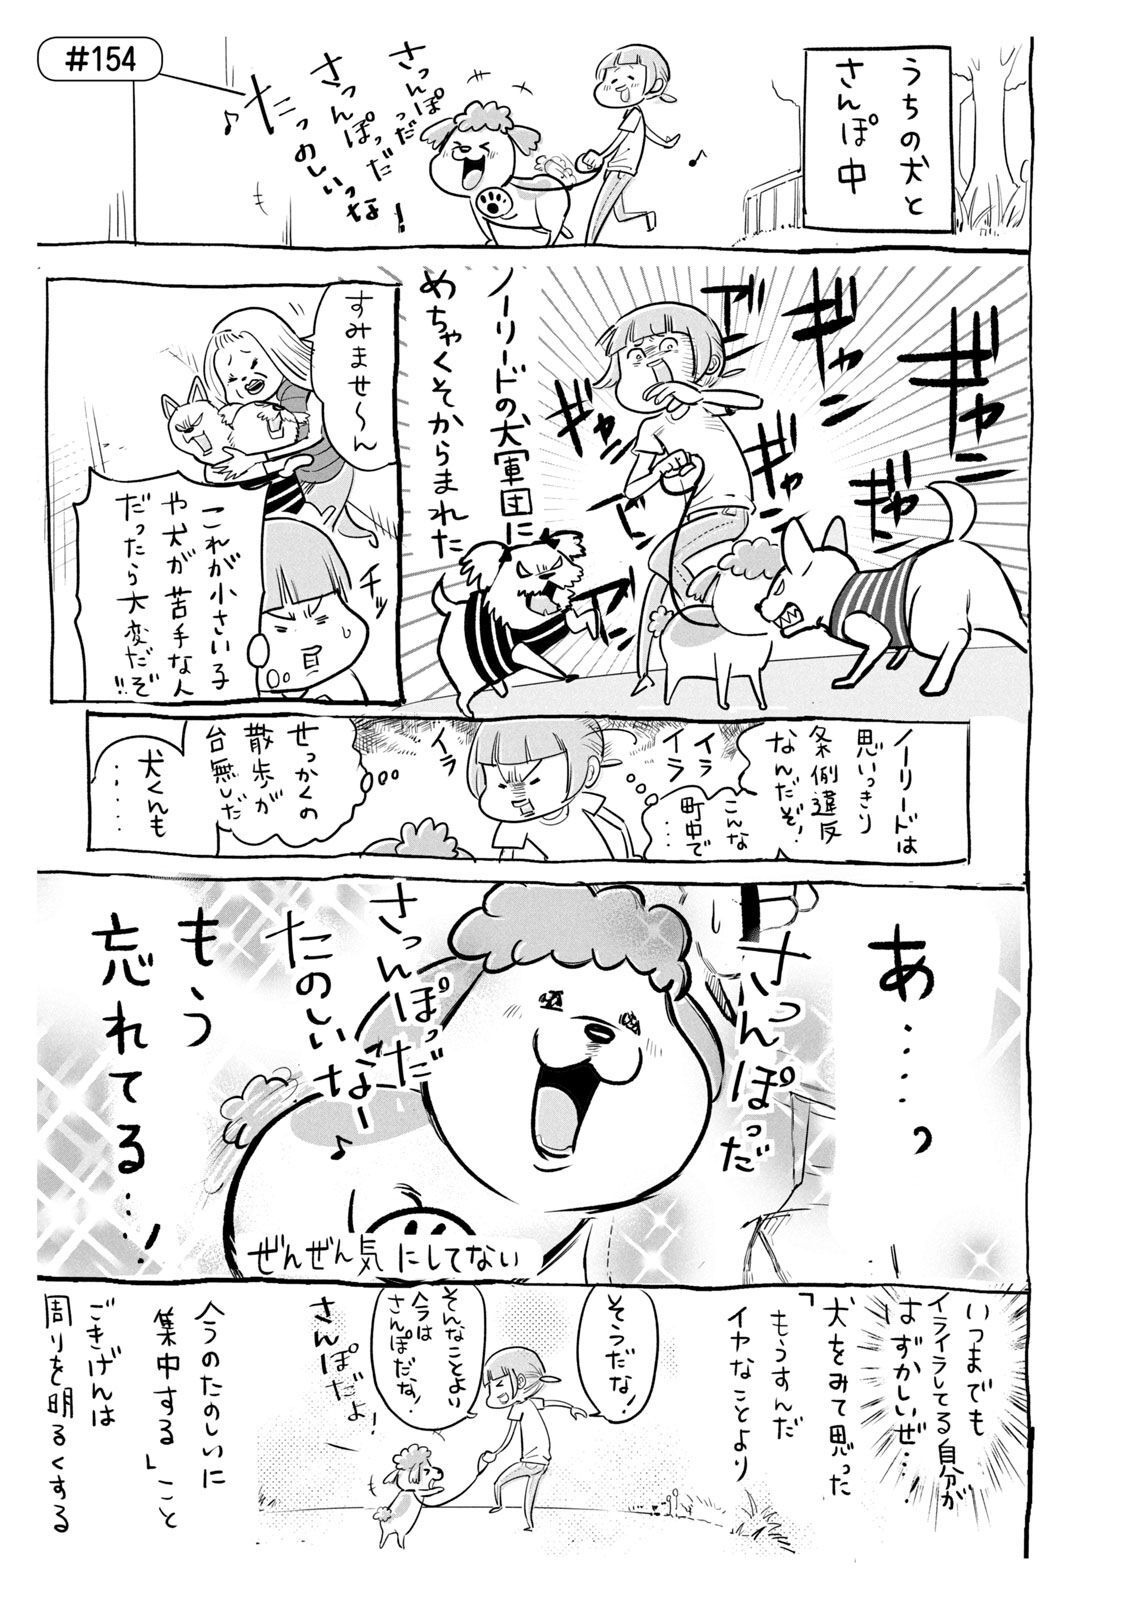 #154
うちの犬と
さんぽ中
さっんぽっだ
さっんぽっだ
たっのしいっなー!
ギャン
ギャン
ギャン
ギャン
デデ
デデ
デデ
ノーリードの犬軍団に
めちゃくそからまれた
すみませ〜ん
これが小さい子
や犬が苦手な人
だったら大変だぞ!!
チッ
ノーリードは
思いっきり
条例違反
なんだぞ!
こんな
町中で
…
イライラ
イラ
せっかくの
散歩が
台無しだ
犬くんも
……
あ……っ
さっんぽっだ
さっんぽっだ
たのしいなー♪
ぜんぜん気にしてない
もう
忘れてる…!
いつまでも
イライラしてる自分が
はずかしいぜ…
犬をみて思った
「もうすんだ
イヤなことより
そうだな!
そんなことよい
今は
さんぽだな!
さんぽだよ!
今のたのしいに
集中する」こと
ごきげんは
周りを明るくする